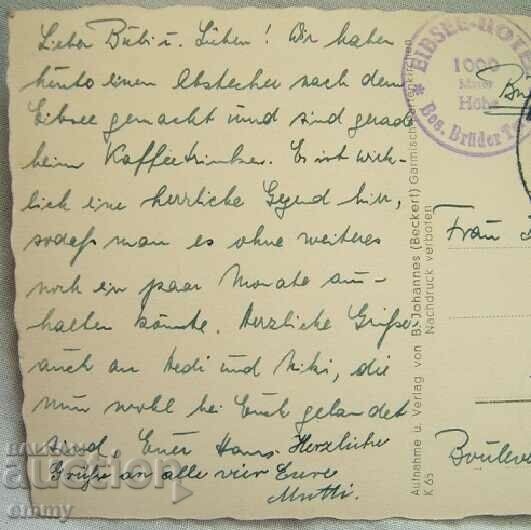 Lieber Bubi u. Lieben! Wir haben
heute einen Abstecher nach dem
Eibsee gemacht und sind gerade
beim Kaffeetrinken. Es ist wirk-
lich eine herrliche Gegend hier,
sodass man es ohne weiteres
noch ein paar Monate aus-
halten könnte. Herzliche Grüße
auch an Hedi und, die
nun wohl bei Euch gelandet
sind, Euer Hans. Herzliche
Grüße an alle vier Eure
Mutti.
EIBSEE-HOTE
1000
Meter
Höhe
Bes. Brüder T
Aufnahme u. Verlag von B. Johannes (Beckert) Garmisch-Partenkirchen
Nachdruck verboten
K 65
Frau
Bouleva
BALKAN
auction
ommy